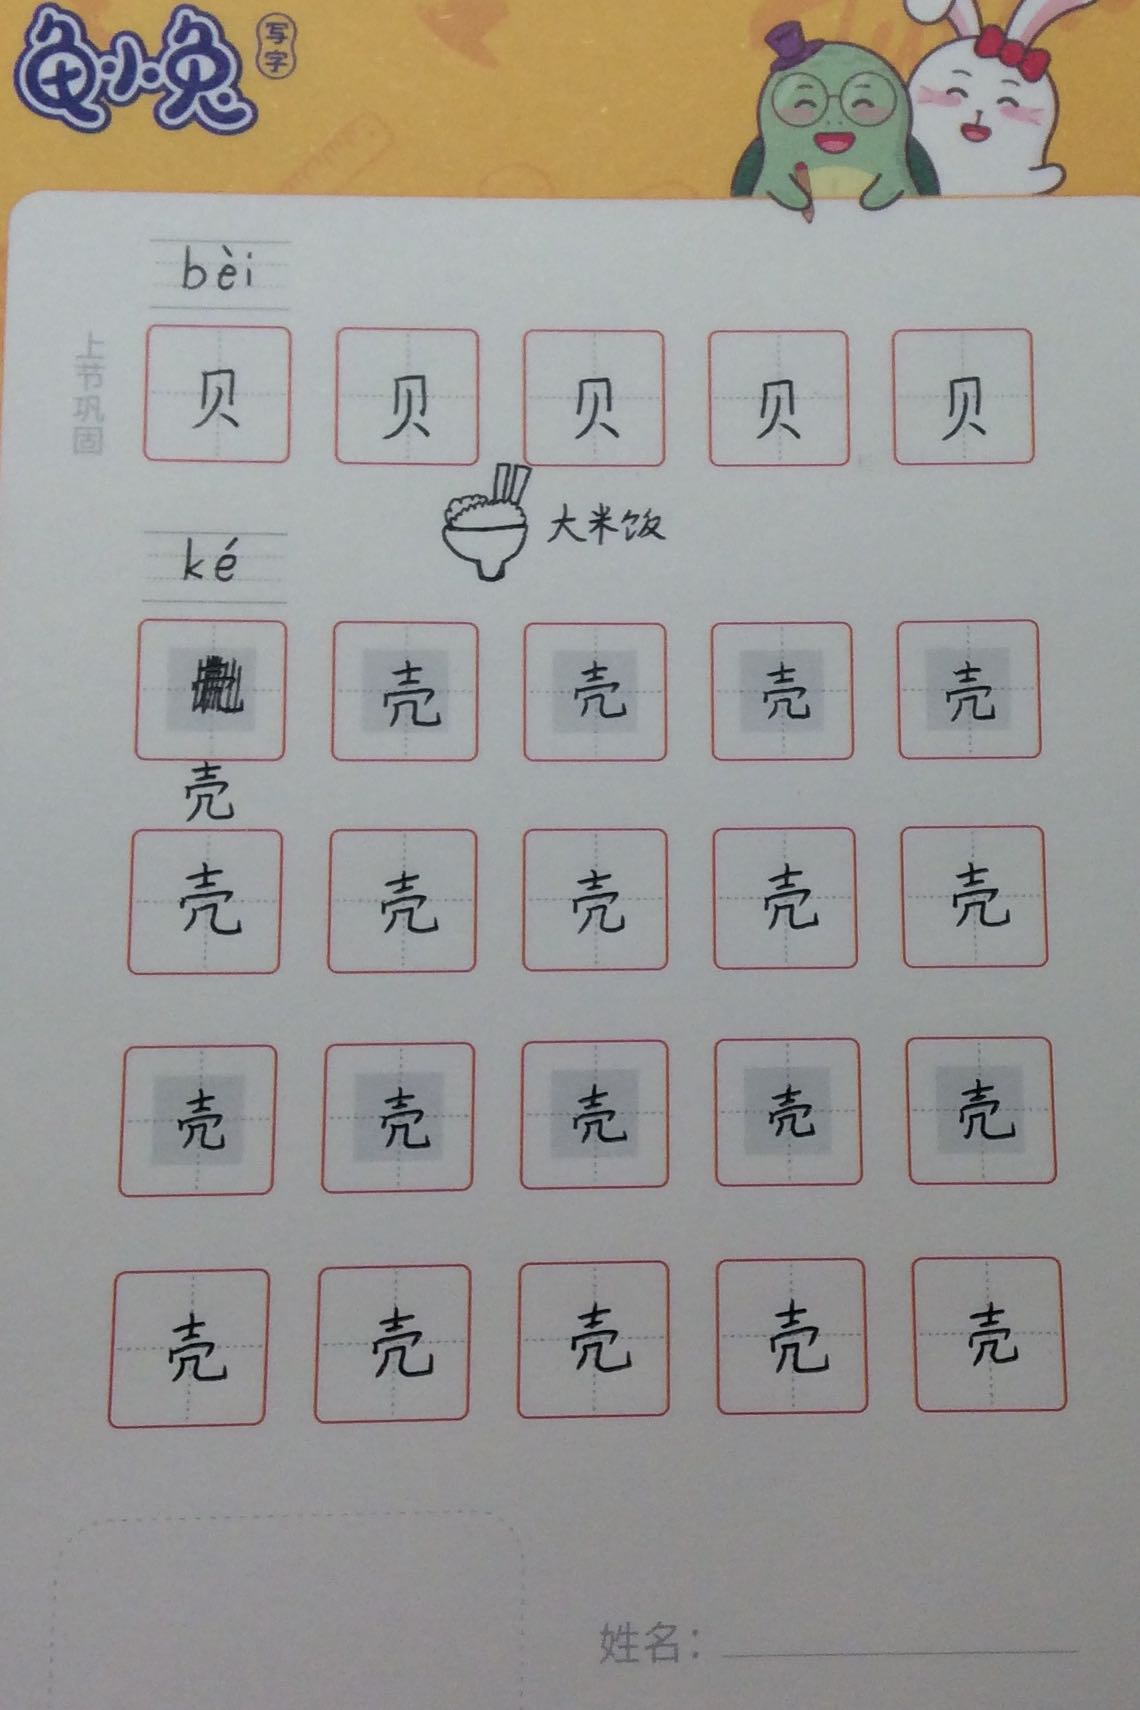 龟小兔 写字
bèi
上节巩固
贝 贝 贝 贝 贝
大米饭
ké
壳 壳 壳 壳
壳
壳 壳 壳 壳 壳
壳 壳 壳 壳 壳
壳 壳 壳 壳 壳
姓名：